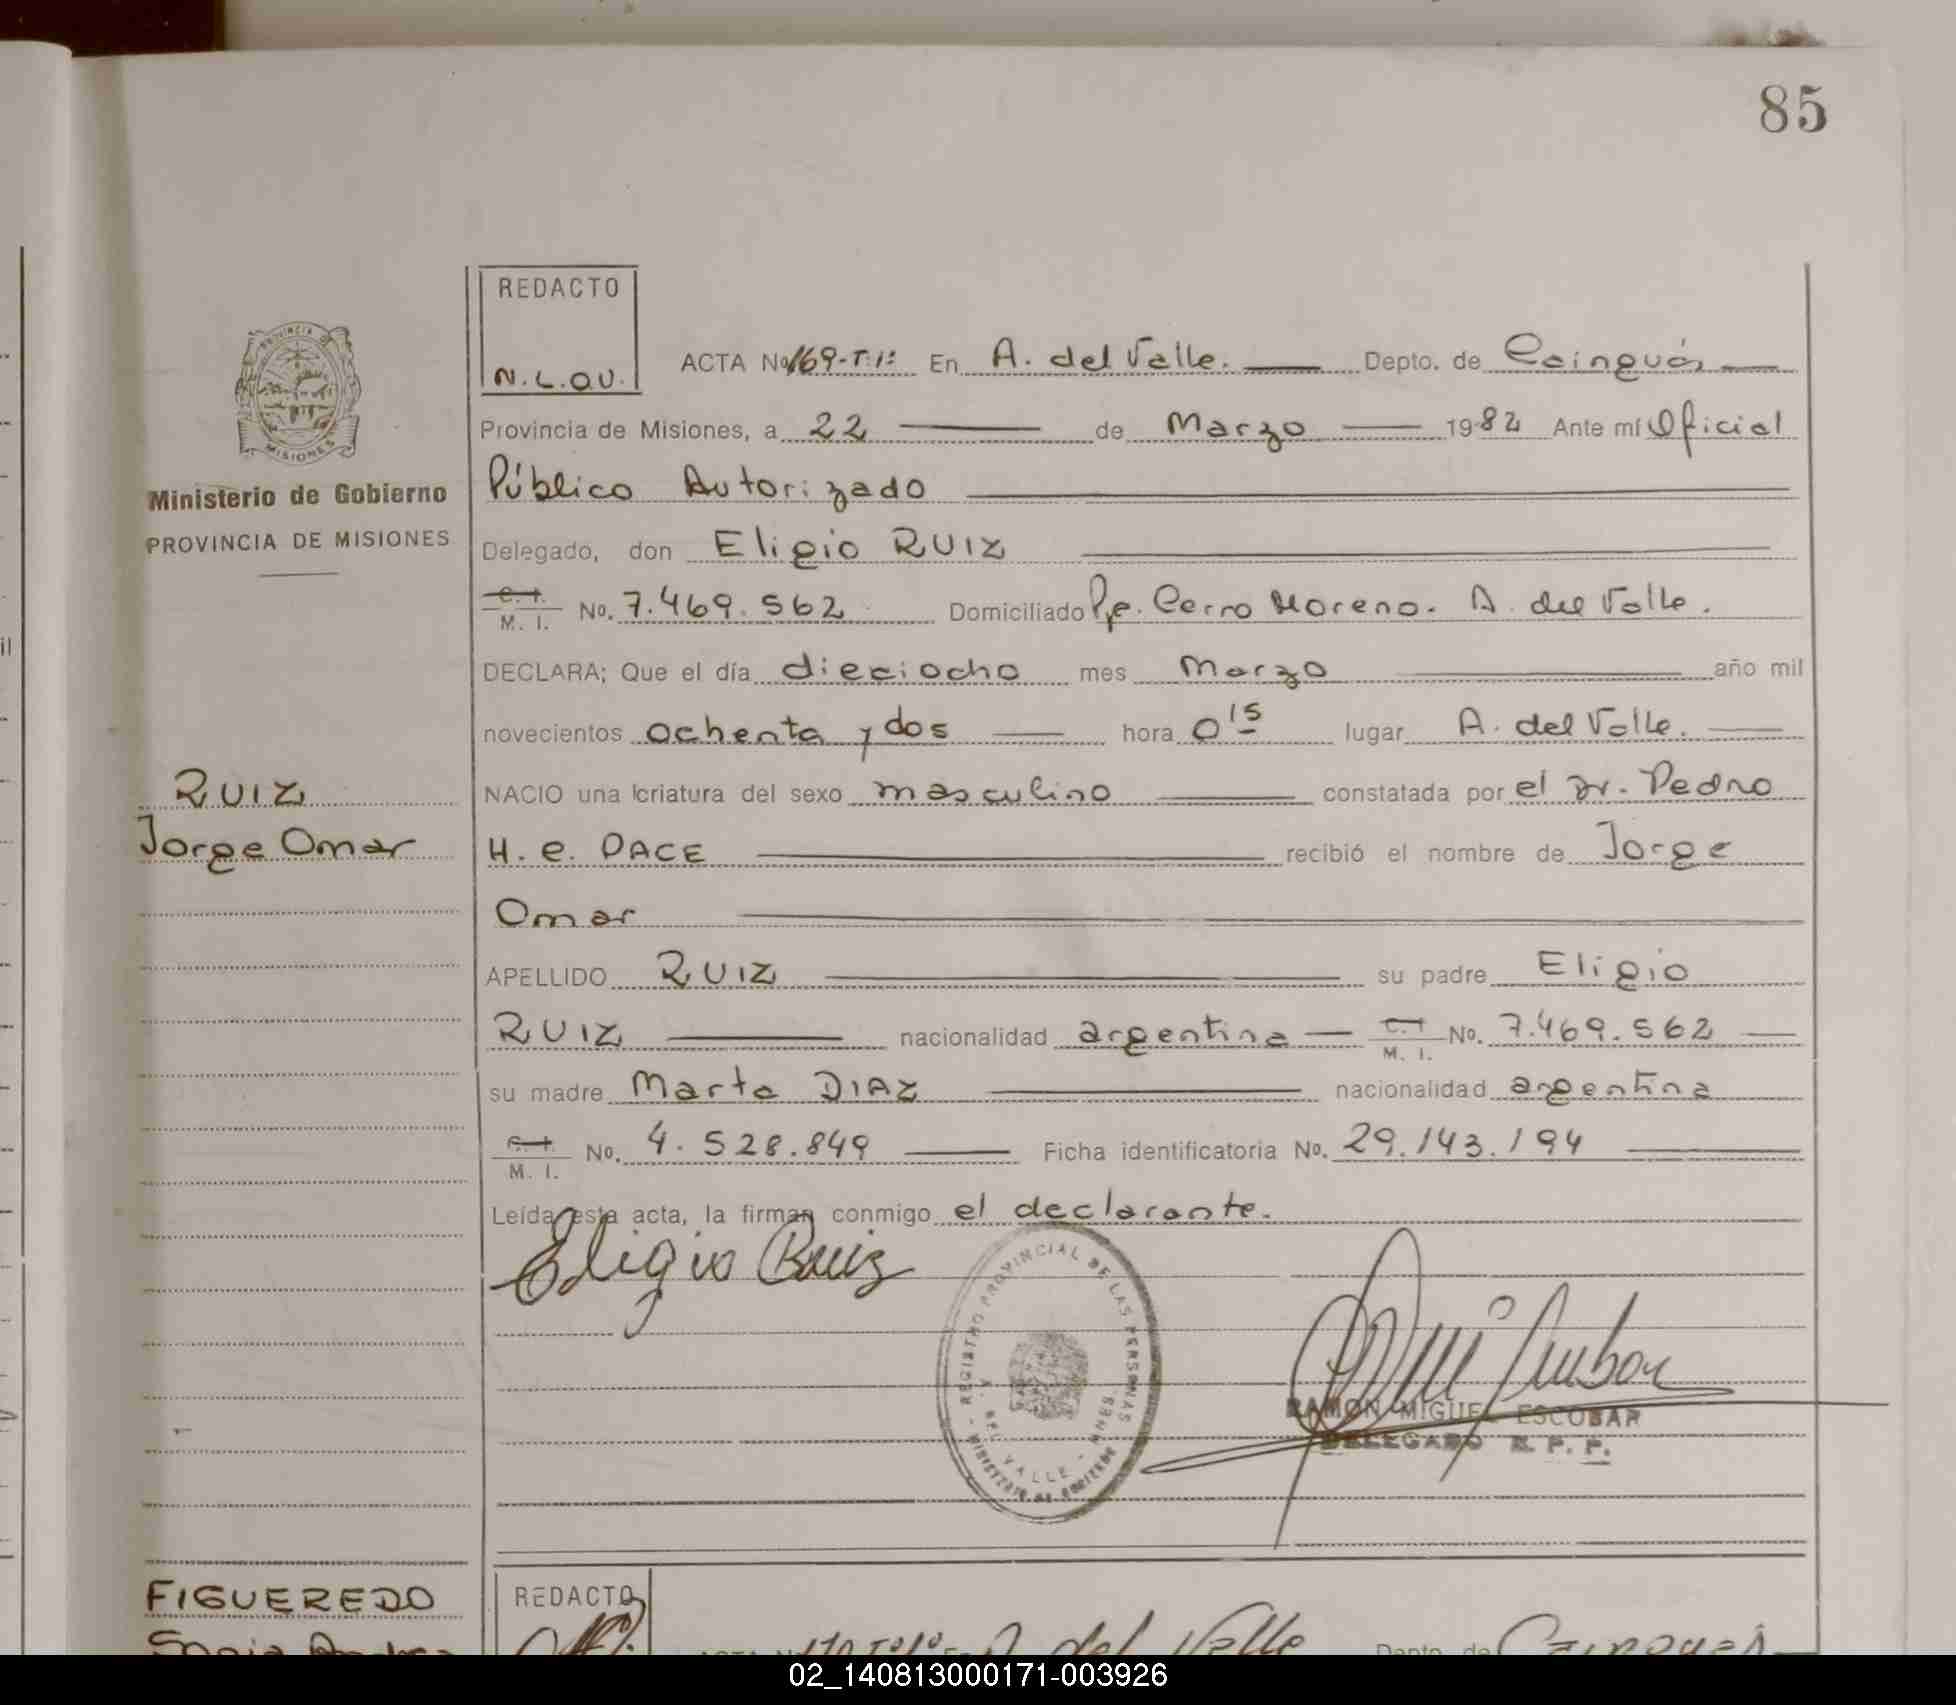 85
REDACTO
N.L.O.U.
ACTA Nº 169-T.1º En A. del Valle. Depto. de Cainguás
PROVINCIA DE MISIONES
Ministerio de Gobierno
PROVINCIA DE MISIONES
Provincia de Misiones, a 22 de Marzo 1982 Ante mí Oficial
Público Autorizado
Delegado, don Eligio RUIZ
C. I. M. I. No. 7.469.562 Domiciliado Pje. Cerro Moreno. A. del Valle.
DECLARA; Que el día dieciocho mes Marzo año mil
novecientos ochenta y dos hora 0 15 lugar A. del Valle.
RUIZ
Jorge Omar
NACIO una criatura del sexo masculino constatada por el Dr. Pedro
H. C. PACE recibió el nombre de Jorge
Omar
APELLIDO RUIZ su padre Eligio
RUIZ nacionalidad argentina C. I. M. I. No. 7.469.562
su madre Marta DIAZ nacionalidad argentina
C. I. M. I. No. 4.528.849 Ficha identificatoria No. 29.143.194
Leída esta acta, la firman conmigo el declarante.
Eligio Ruiz
REGISTRO PROVINCIAL DE LAS PERSONAS
DEL VALLE - MNES.
MINISTERIO DE GOBIERNO
RAMON MIGUEL ESCOBAR
DELEGADO R. P. P.
FIGUEREDO
Sonia Andrea
REDACTO
ACTA Nº 170 T. 1º En A. del Valle Depto. de Cainguás
02_140813000171-003926